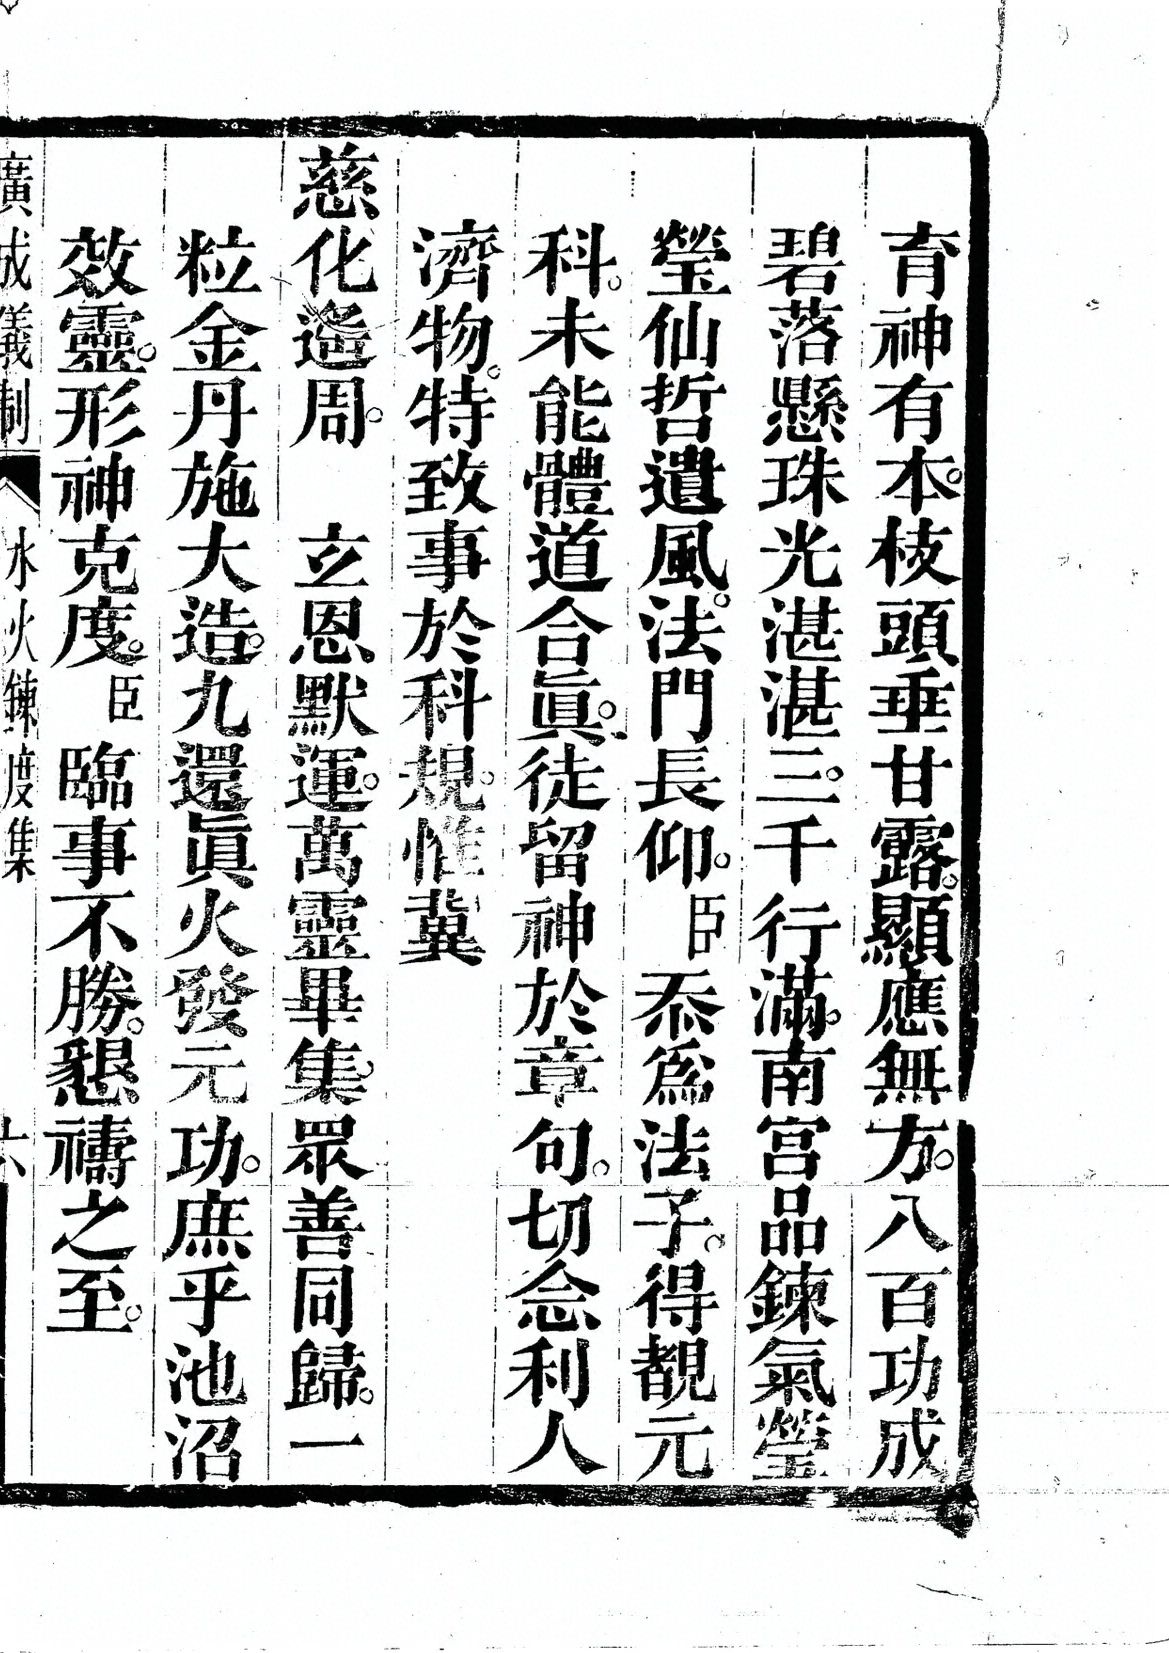 育神有本。枝頭垂甘露。顯應無方。八百功成
碧落懸珠光湛湛。三千行滿。南宮品鍊氣瑩
瑩仙哲遺風。法門長仰。臣忝爲法子。得覩元
科。未能體道合眞。徒留神於章句。切念利人
濟物。特致事於科規。惟冀
慈化遥周。 立恩默運。萬靈畢集。眾善同歸。一
粒金丹施大造。九還眞火發元功。庶乎池沼
效靈。形神克度。臣臨事不勝。懇禱之至。
廣成儀制 水火鍊度集 十六